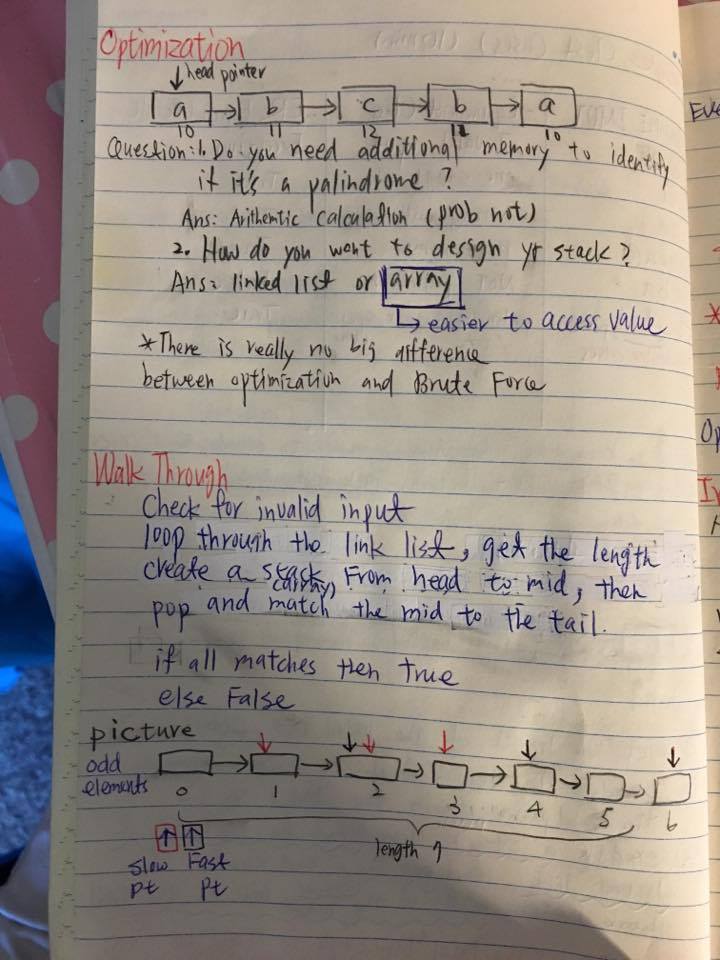 Optimization
↓head pointer
a → b → c → b → a
10 11 12 12 10
Question: 1. Do you need additional memory to identify
if it's a palindrome?
Ans: Arithemtic calculation (prob not)
2. How do you want to design yr stack?
Ans: linked list or array
↳ easier to access value
*There is really no big difference
between optimization and Brute Force
Walk Through
Check for invalid input
loop through the link list, get the length
create a stack (array), From head to mid, then
pop and match the mid to the tail.
if all matches then True
else False
picture
odd
elements
0 1 2 3 4 5 6
length 7
Slow Fast
pt pt
Eve
Op